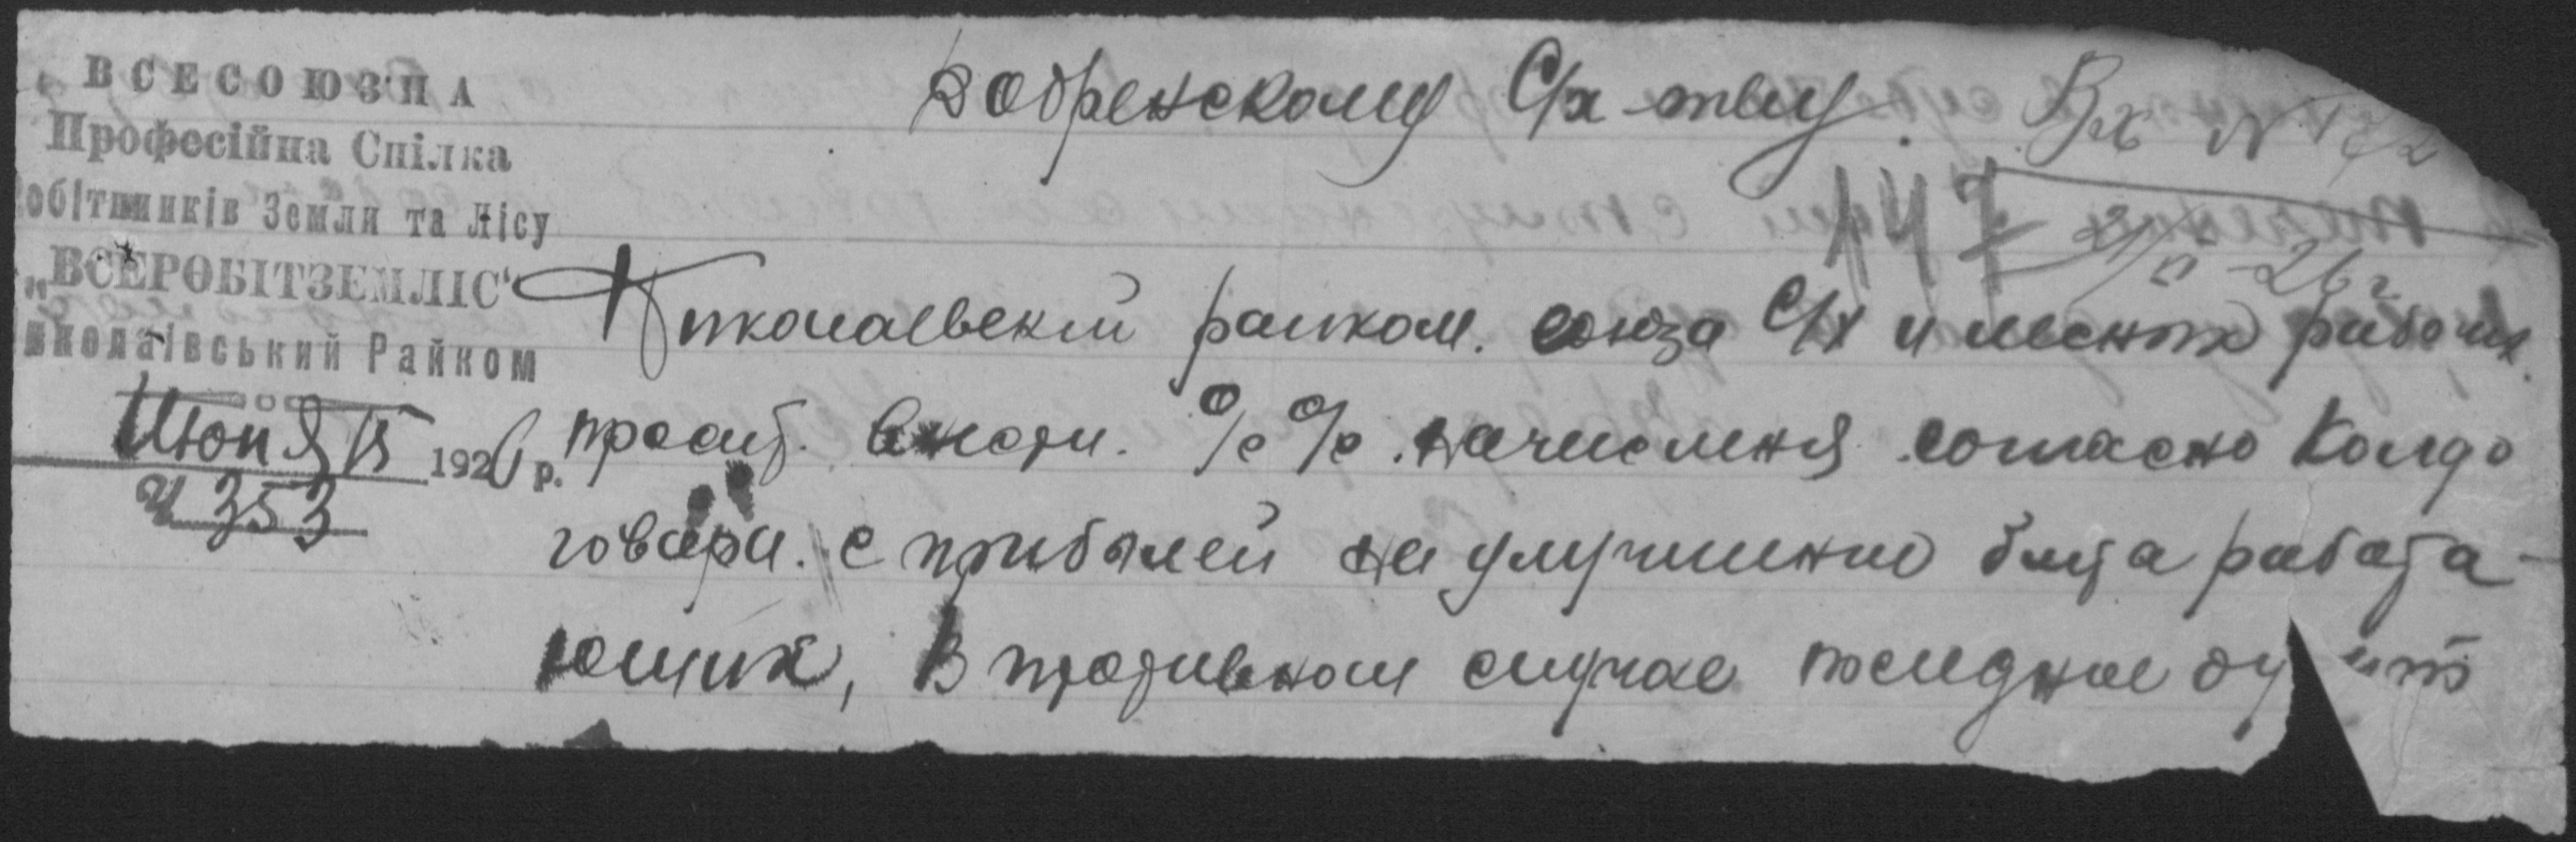 ВСЕСОЮЗНА
Професійна Спілка
обітників Землі та Лісу
„ВСЕРОБІТЗЕМЛІС“
иколаївський Райком
Июня 15 1926 р.
№ 353
Добренскому С/х т-ву.
Вх №
147
21/VI-26 г
Николаевский райком. союза С/х и лесных рабочих
просит. внести. % % начисления согласно Колдо
говора. с прибылей на улучшение быта работа-
ющих, В противном случае